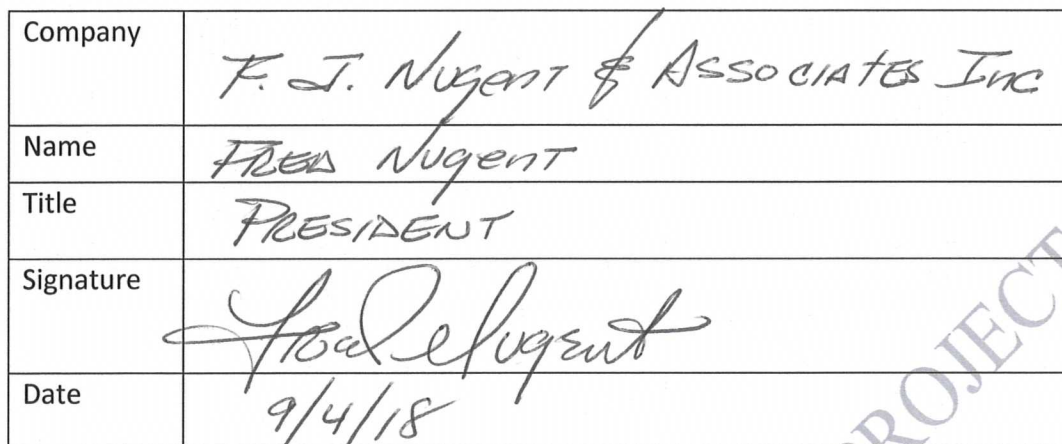 Company F. J. Nugent & Associates Inc
Name Fred Nugent
Title President
Signature Fred Nugent
Date 9/4/18
PROJECT